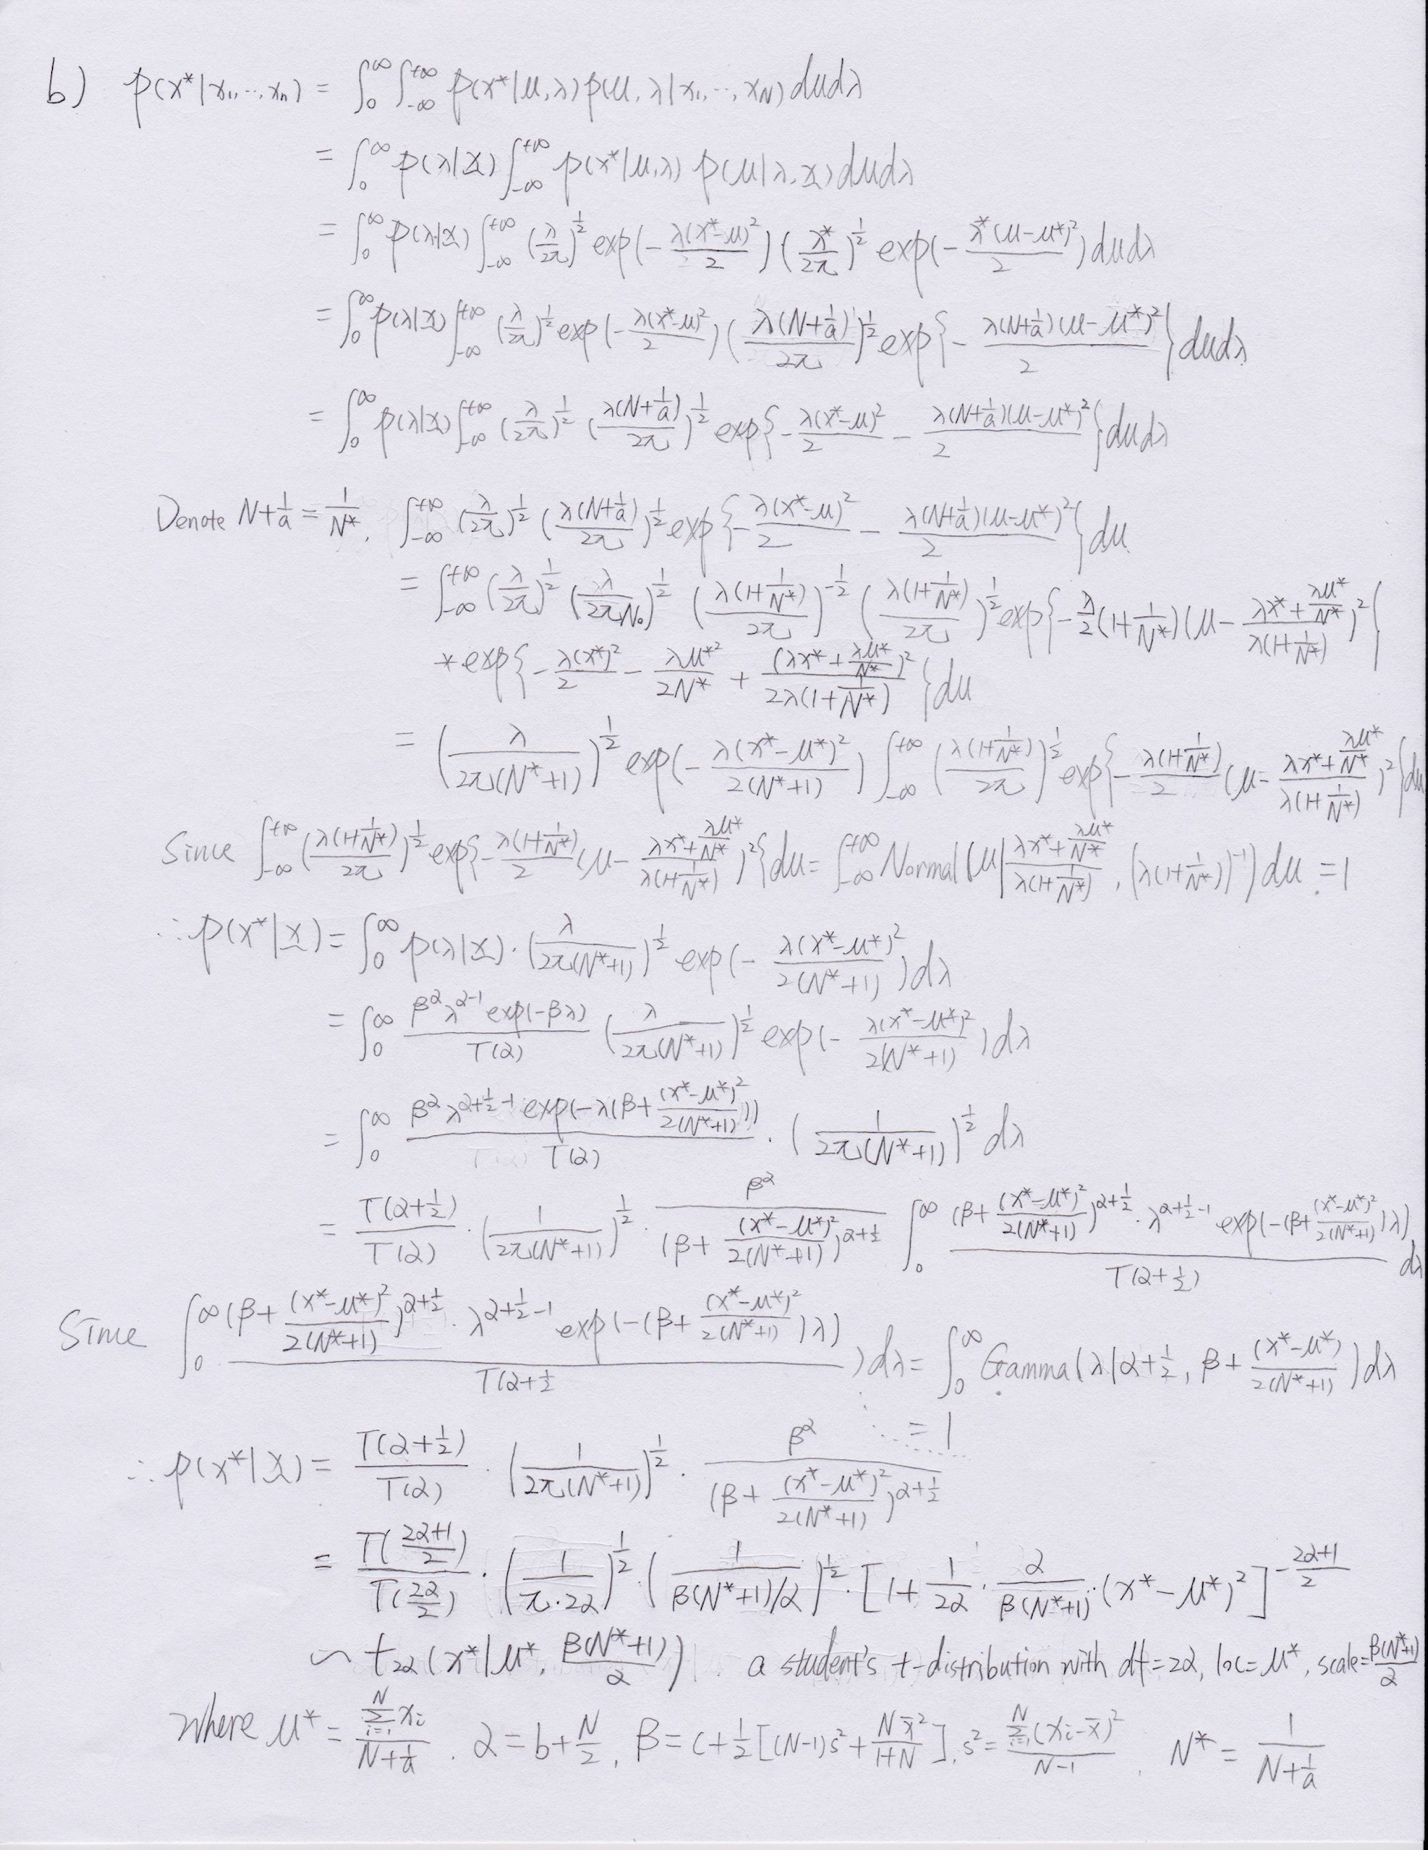 b) p(x*|x₁,...,xₙ) = ∫₀^∞ ∫₋∞^{+∞} p(x*|μ,λ) p(μ,λ|x₁,...,x_N) dμdλ
= ∫₀^∞ p(λ|x) ∫₋∞^{+∞} p(x*|μ,λ) p(μ|λ,x) dμdλ
= ∫₀^∞ p(λ|x) ∫₋∞^{+∞} (λ/2π)^{1/2} exp(-λ(x*-μ)²/2) (λ*/2π)^{1/2} exp(-λ*(μ-μ*)²/2) dμdλ
= ∫₀^∞ p(λ|x) ∫₋∞^{+∞} (λ/2π)^{1/2} exp(-λ(x*-μ)²/2) (λ(N+1/a)/2π)^{1/2} exp{-λ(N+1/a)(μ-μ*)²/2} dμdλ
= ∫₀^∞ p(λ|x) ∫₋∞^{+∞} (λ/2π)^{1/2} (λ(N+1/a)/2π)^{1/2} exp{-λ(x*-μ)²/2 - λ(N+1/a)(μ-μ*)²/2} dμdλ
Denote N+1/a = 1/N*. ∫₋∞^{+∞} (λ/2π)^{1/2} (λ(N+1/a)/2π)^{1/2} exp{-λ(x*-μ)²/2 - λ(N+1/a)(μ-μ*)²/2} dμ
= ∫₋∞^{+∞} (λ/2π)^{1/2} (λ/2πN₀)^{1/2} (λ(1+1/N*)/2π)^{-1/2} (λ(1+1/N*)/2π)^{1/2} exp{-λ/2 (1+1/N*) (μ - (λx*+λμ*/N*)/(λ(1+1/N*)))²}
* exp{-λ(x*)²/2 - λμ*²/2N* + (λx*+λμ*/N*)²/(2λ(1+1/N*))} dμ
= (λ/(2π(N*+1)))^{1/2} exp(-λ(x*-μ*)²/(2(N*+1))) ∫₋∞^{+∞} (λ(1+1/N*)/2π)^{1/2} exp{-λ(1+1/N*)/2 (μ - (λx*+λμ*/N*)/(λ(1+1/N*)))²} dμ
Since ∫₋∞^{+∞} (λ(1+1/N*)/2π)^{1/2} exp{-λ(1+1/N*)/2 (μ - (λx*+λμ*/N*)/(λ(1+1/N*)))²} dμ = ∫₋∞^{+∞} Normal(μ|(λx*+λμ*/N*)/(λ(1+1/N*)), (λ(1+1/N*))⁻¹) dμ = 1
∴ p(x*|x) = ∫₀^∞ p(λ|x)·(λ/(2π(N*+1)))^{1/2} exp(-λ(x*-μ*)²/(2(N*+1))) dλ
= ∫₀^∞ β^α λ^{α-1} exp(-βλ)/Γ(α) (λ/(2π(N*+1)))^{1/2} exp(-λ(x*-μ*)²/(2(N*+1))) dλ
= ∫₀^∞ β^α λ^{α+1/2-1} exp(-λ(β+(x*-μ*)²/(2(N*+1))))/Γ(α) · (1/(2π(N*+1)))^{1/2} dλ
= Γ(α+1/2)/Γ(α) · (1/(2π(N*+1)))^{1/2} · β^α/(β+(x*-μ*)²/(2(N*+1)))^{α+1/2} ∫₀^∞ (β+(x*-μ*)²/(2(N*+1)))^{α+1/2} · λ^{α+1/2-1} exp(-(β+(x*-μ*)²/(2(N*+1)))λ)/Γ(α+1/2) dλ
Since ∫₀^∞ (β+(x*-μ*)²/(2(N*+1)))^{α+1/2} · λ^{α+1/2-1} exp(-(β+(x*-μ*)²/(2(N*+1)))λ)/Γ(α+1/2) ) dλ = ∫₀^∞ Gamma(λ|α+1/2, β+(x*-μ*)/(2(N*+1))) dλ
= 1
∴ p(x*|x) = Γ(α+1/2)/Γ(α) · (1/(2π(N*+1)))^{1/2} · β^α/(β+(x*-μ*)²/(2(N*+1)))^{α+1/2}
= Γ((2α+1)/2)/Γ(2α/2) · (1/(π·2α))^{1/2} (1/(β(N*+1)/α))^{1/2} · [1+1/2α · α/(β(N*+1)) · (x*-μ*)²]^{-(2α+1)/2}
~ t_{2α}(x*|μ*, β(N*+1)/α). a student's t-distribution with df=2α, loc=μ*, scale=β(N*+1)/α
where μ* = Σ_{i=1}^N xᵢ/(N+1/a). α = b+N/2, β = c+1/2[(N-1)s²+Nx̄²/(1+N)], s² = Σ_{i=1}^N (xᵢ-x̄)²/(N-1). N* = 1/(N+1/a)